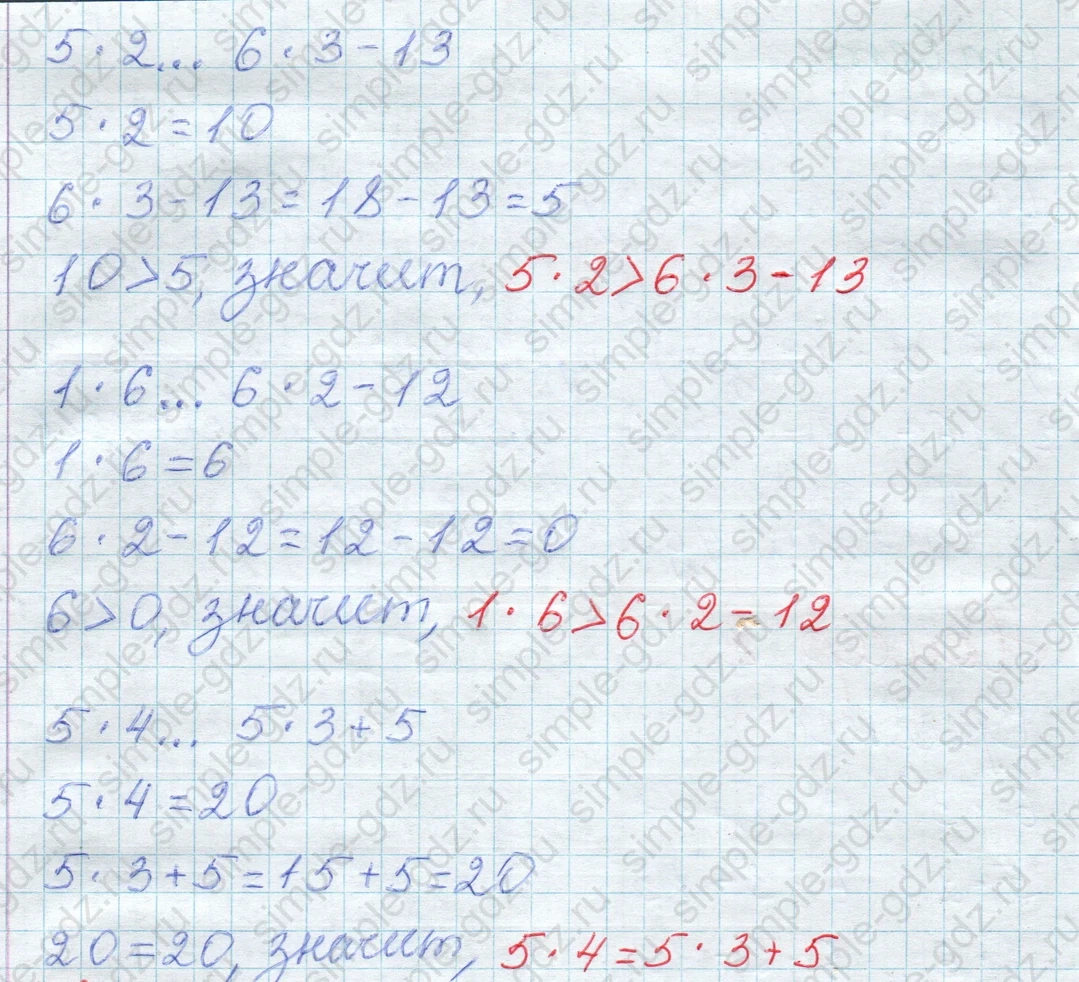 5 · 2... 6 · 3 - 13
5 · 2 = 10
6 · 3 - 13 = 18 - 13 = 5
10 > 5, значит, 5 · 2 > 6 · 3 - 13
1 · 6... 6 · 2 - 12
1 · 6 = 6
6 · 2 - 12 = 12 - 12 = 0
6 > 0, значит, 1 · 6 > 6 · 2 = 12
5 · 4... 5 · 3 + 5
5 · 4 = 20
5 · 3 + 5 = 15 + 5 = 20
20 = 20, значит, 5 · 4 = 5 · 3 + 5
simple-gdz.ru